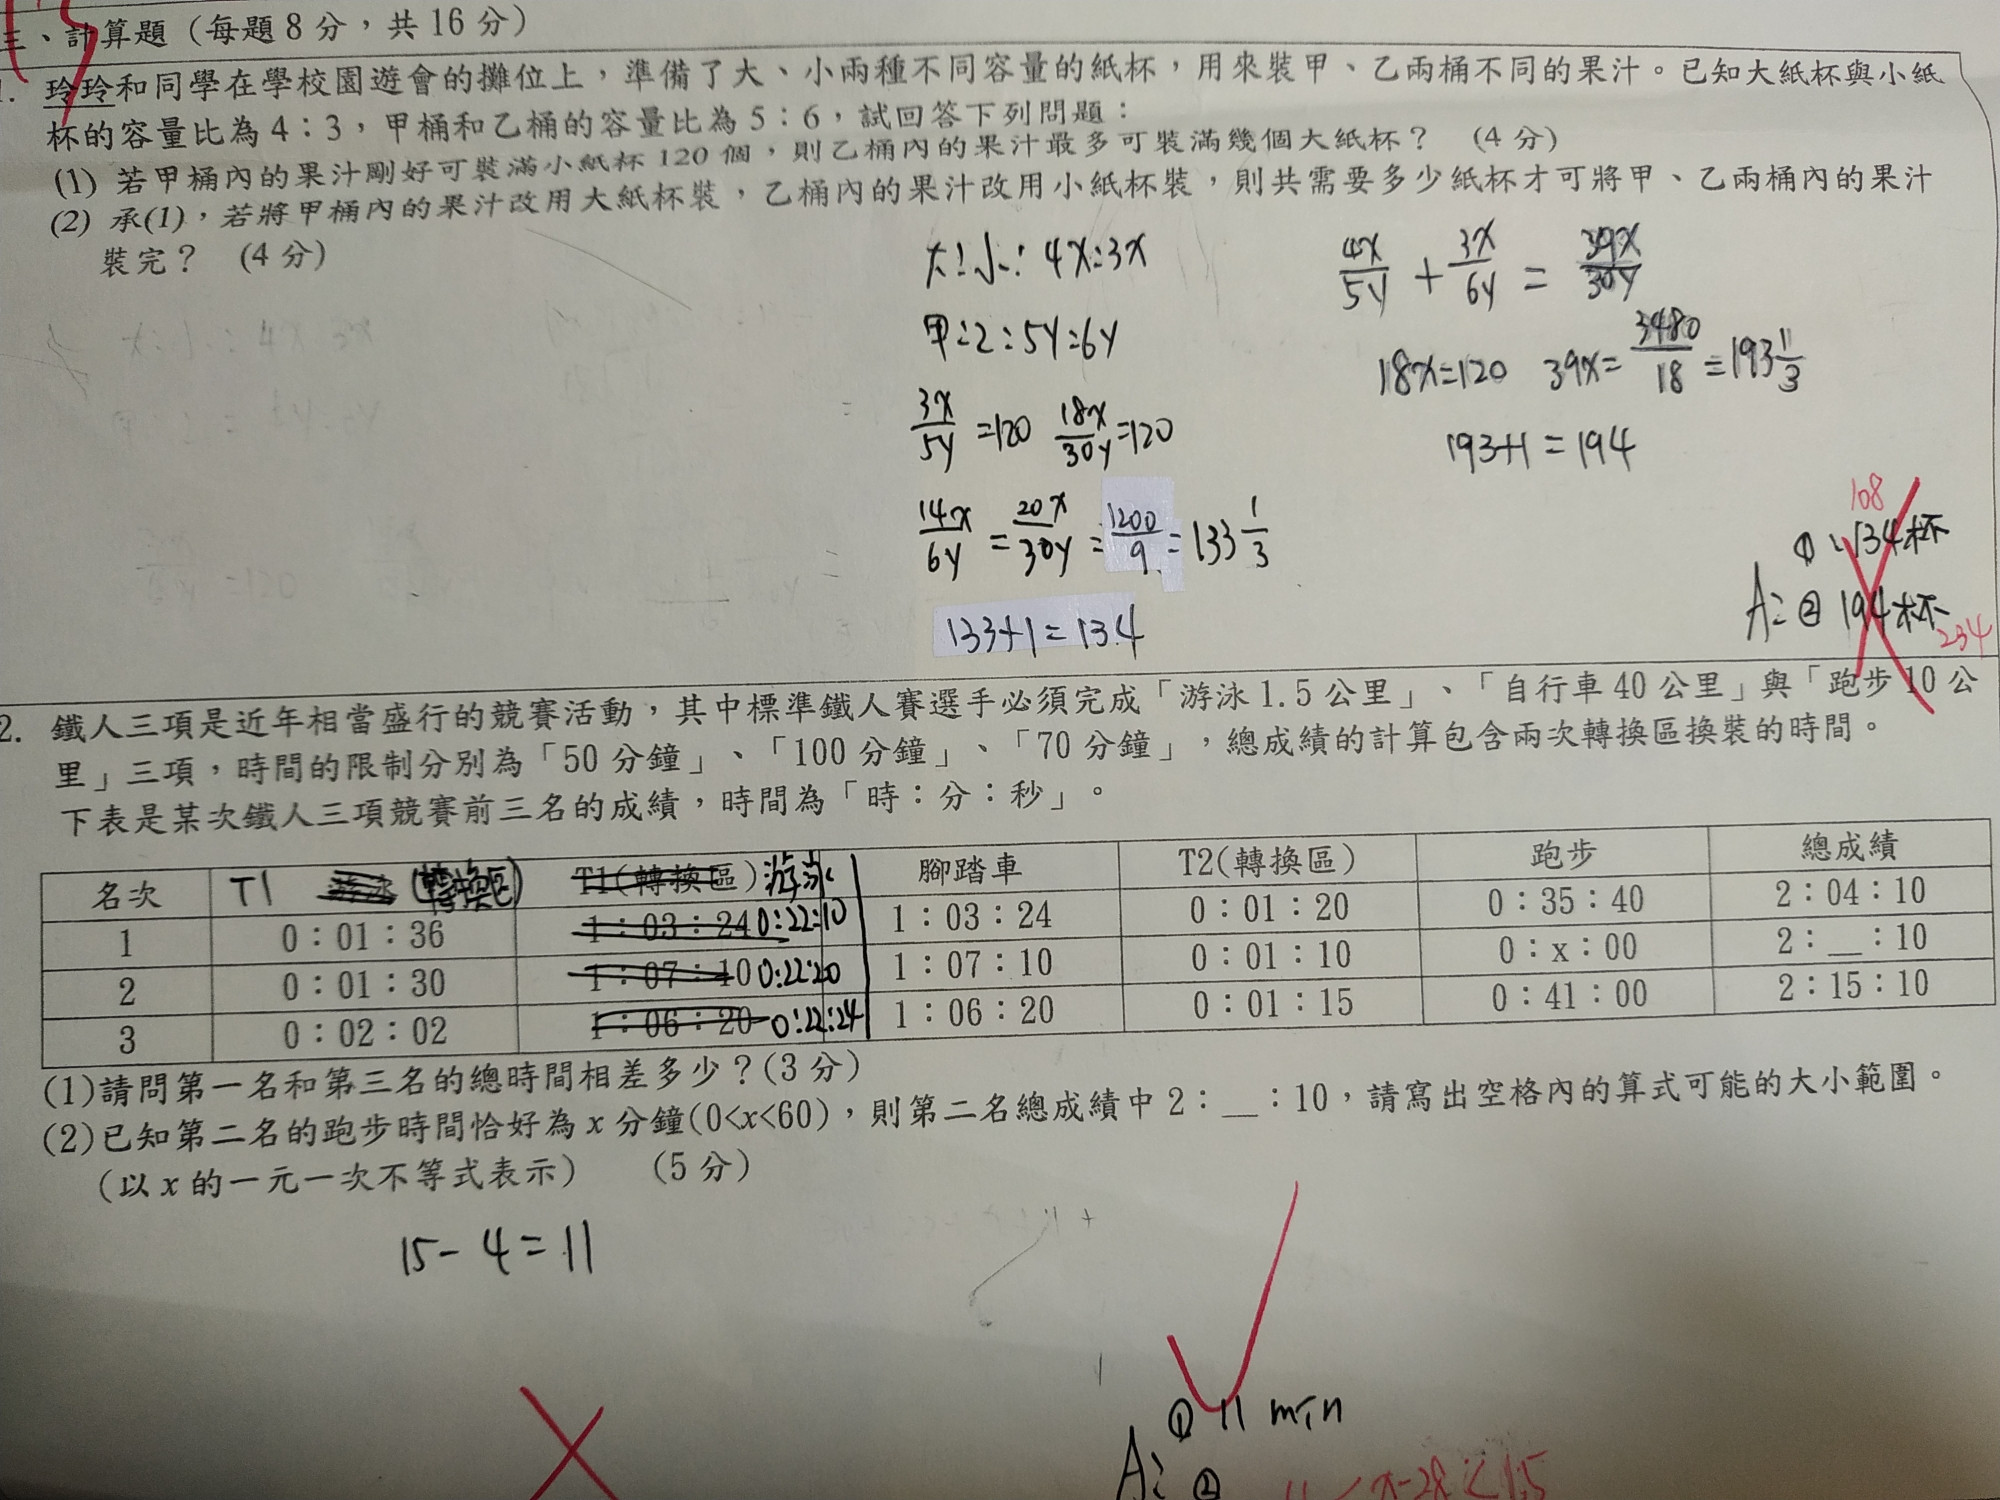 三、計算題（每題8分，共16分）
1. 玲玲和同學在學校園遊會的攤位上，準備了大、小兩種不同容量的紙杯，用來裝甲、乙兩桶不同的果汁。已知大紙杯與小紙
杯的容量比為4：3，甲桶和乙桶的容量比為5：6，試回答下列問題：
(1) 若甲桶內的果汁剛好可裝滿小紙杯120個，則乙桶內的果汁最多可裝滿幾個大紙杯？ (4分)
(2) 承(1)，若將甲桶內的果汁改用大紙杯裝，乙桶內的果汁改用小紙杯裝，則共需要多少紙杯才可將甲、乙兩桶內的果汁
裝完？ (4分)
大:小: 4x:3x
甲:乙:5y:6y
3x/5y =120 18x/30y=120
14x/6y = 20x/30y = 1200/9 = 133 1/3
133+1=134
4x/5y + 3x/6y = 39x/30y
18x=120 39x= 3480/18 = 193 1/3
193+1=194
108
①:134杯
A: ② 194杯
234
2. 鐵人三項是近年相當盛行的競賽活動，其中標準鐵人賽選手必須完成「游泳1.5公里」、「自行車40公里」與「跑步10公
里」三項，時間的限制分別為「50分鐘」、「100分鐘」、「70分鐘」，總成績的計算包含兩次轉換區換裝的時間。
下表是某次鐵人三項競賽前三名的成績，時間為「時：分：秒」。
名次 T1 游泳 (轉換區) T1(轉換區) 游泳 腳踏車 T2(轉換區) 跑步 總成績
1 0：01：36 1：03：24 0:22:10 1：03：24 0：01：20 0：35：40 2：04：10
2 0：01：30 1：07：10 0:22:20 1：07：10 0：01：10 0：x：00 2：__：10
3 0：02：02 1：06：20 0:22:24 1：06：20 0：01：15 0：41：00 2：15：10
(1)請問第一名和第三名的總時間相差多少？(3分)
(2)已知第二名的跑步時間恰好為x分鐘(0<x<60)，則第二名總成績中2：__：10，請寫出空格內的算式可能的大小範圍。
(以x的一元一次不等式表示) (5分)
15-4=11
① 11 min
A: ②